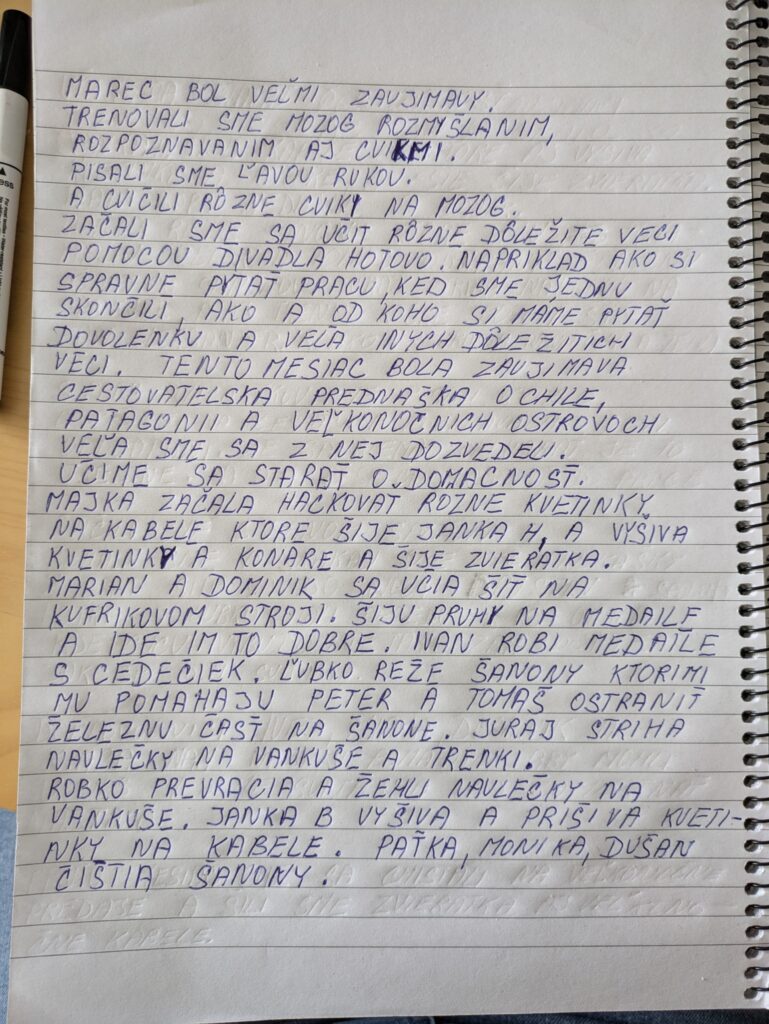 MAREC BOL VEĽMI ZAUJIMAVY.
TRENOVALI SME MOZOG ROZMYŠLANIM,
ROZPOZNAVANIM AJ CVIKMI.
PISALI SME ĽAVOU RUKOU.
A CVIČILI RÔZNE CVIKY NA MOZOG.
ZAČALI SME SA UČIT RÔZNE DÔLEŽITE VECI
POMOCOU DIVADLA HOTOVO. NAPRIKLAD AKO SI
SPRAVNE PYTAŤ PRACU, KED SME JEDNU
SKONČILI, AKO A OD KOHO SI MÁME PYTAŤ
DOVOLENKU A VEĽA INYCH DÔLEŽITICH
VECI. TENTO MESIAC BOLA ZAUJIMAVA
CESTOVATELSKA PREDNAŠKA O CHILE,
PATAGONII A VEĽKONOČNICH OSTROVOCH
VEĽA SME SA Z NEJ DOZVEDELI.
UČIME SA STARAŤ O DOMACNOSŤ.
MAJKA ZAČALA HACKOVAT ROZNE KVETINKY
NA KABELE KTORE ŠIJE JANKA H, A VYŠIVA
KVETINKY A KONARE A ŠIJE ZVIERATKA.
MARIAN A DOMINIK SA UČIA ŠIŤ NA
KUFRIKOVOM STROJI. ŠIJU PRUHY NA MEDAILE
A IDE IM TO DOBRE. IVAN ROBI MEDAILE
S CEDEČIEK. ĽUBKO REŽE ŠANONY KTORIMI
MU POMAHAJU PETER A TOMAŠ OSTRANIŤ
ŽELEZNU ČASŤ NA ŠANONE. JURAJ STRIHA
NAVLEČKY NA VANKUŠE A TRENKI.
ROBKO PREVRACIA A ŽEHLI NAVLEČKY NA
VANKUŠE. JANKA B VYŠIVA A PRIŠIVA KVETI-
NKY NA KABELE. PAŤKA, MONIKA, DUŠAN
ČISTIA ŠANONY.